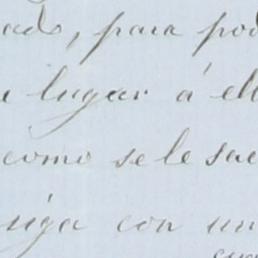 ado, para pod
lugar á ell
como se le sac
siga con un